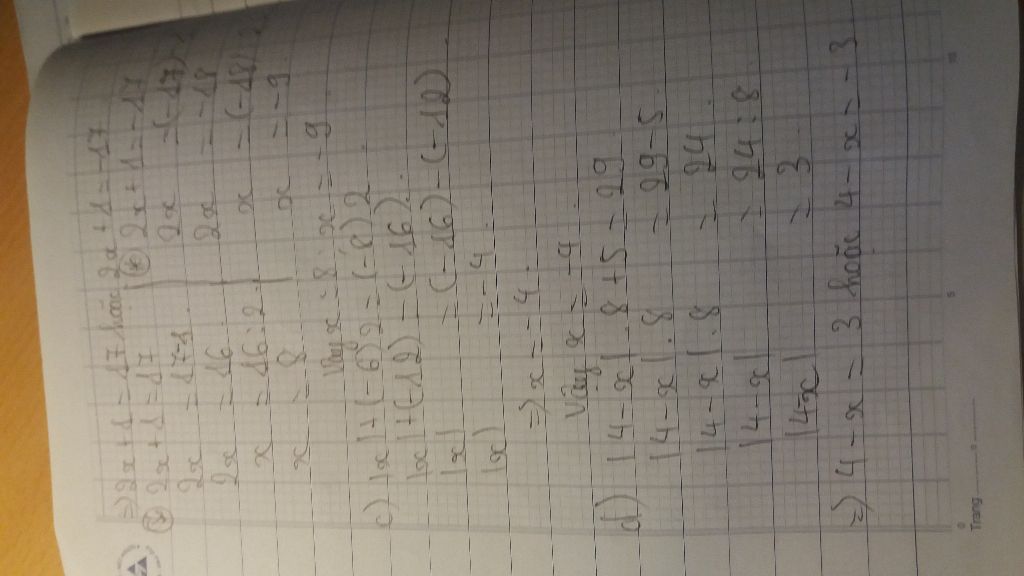 => 2x + 1 = 17 hoặc 2x + 1 = -17
* 2x + 1 = 17 | * 2x + 1 = -17
2x = 17-1 | 2x = (-17)
2x = 16 | 2x = -18
x = 16 : 2 | x = (-18)
x = 8 | x = -9
Vậy x = 8; x = -9
c) |x| + (-6)2 = (-8)2
|x| + (-12) = (-16)
|x| = (-16) - (-12)
|x| = -4
=> x = -4
Vậy x = -4
d) |4-x| . 8 + 5 = 29
|4-x| . 8 = 29-5
|4-x| . 8 = 24
|4-x| = 24 : 8
|4-x| = 3
=> 4-x = 3 hoặc 4-x = -3
0 5 10
Trang